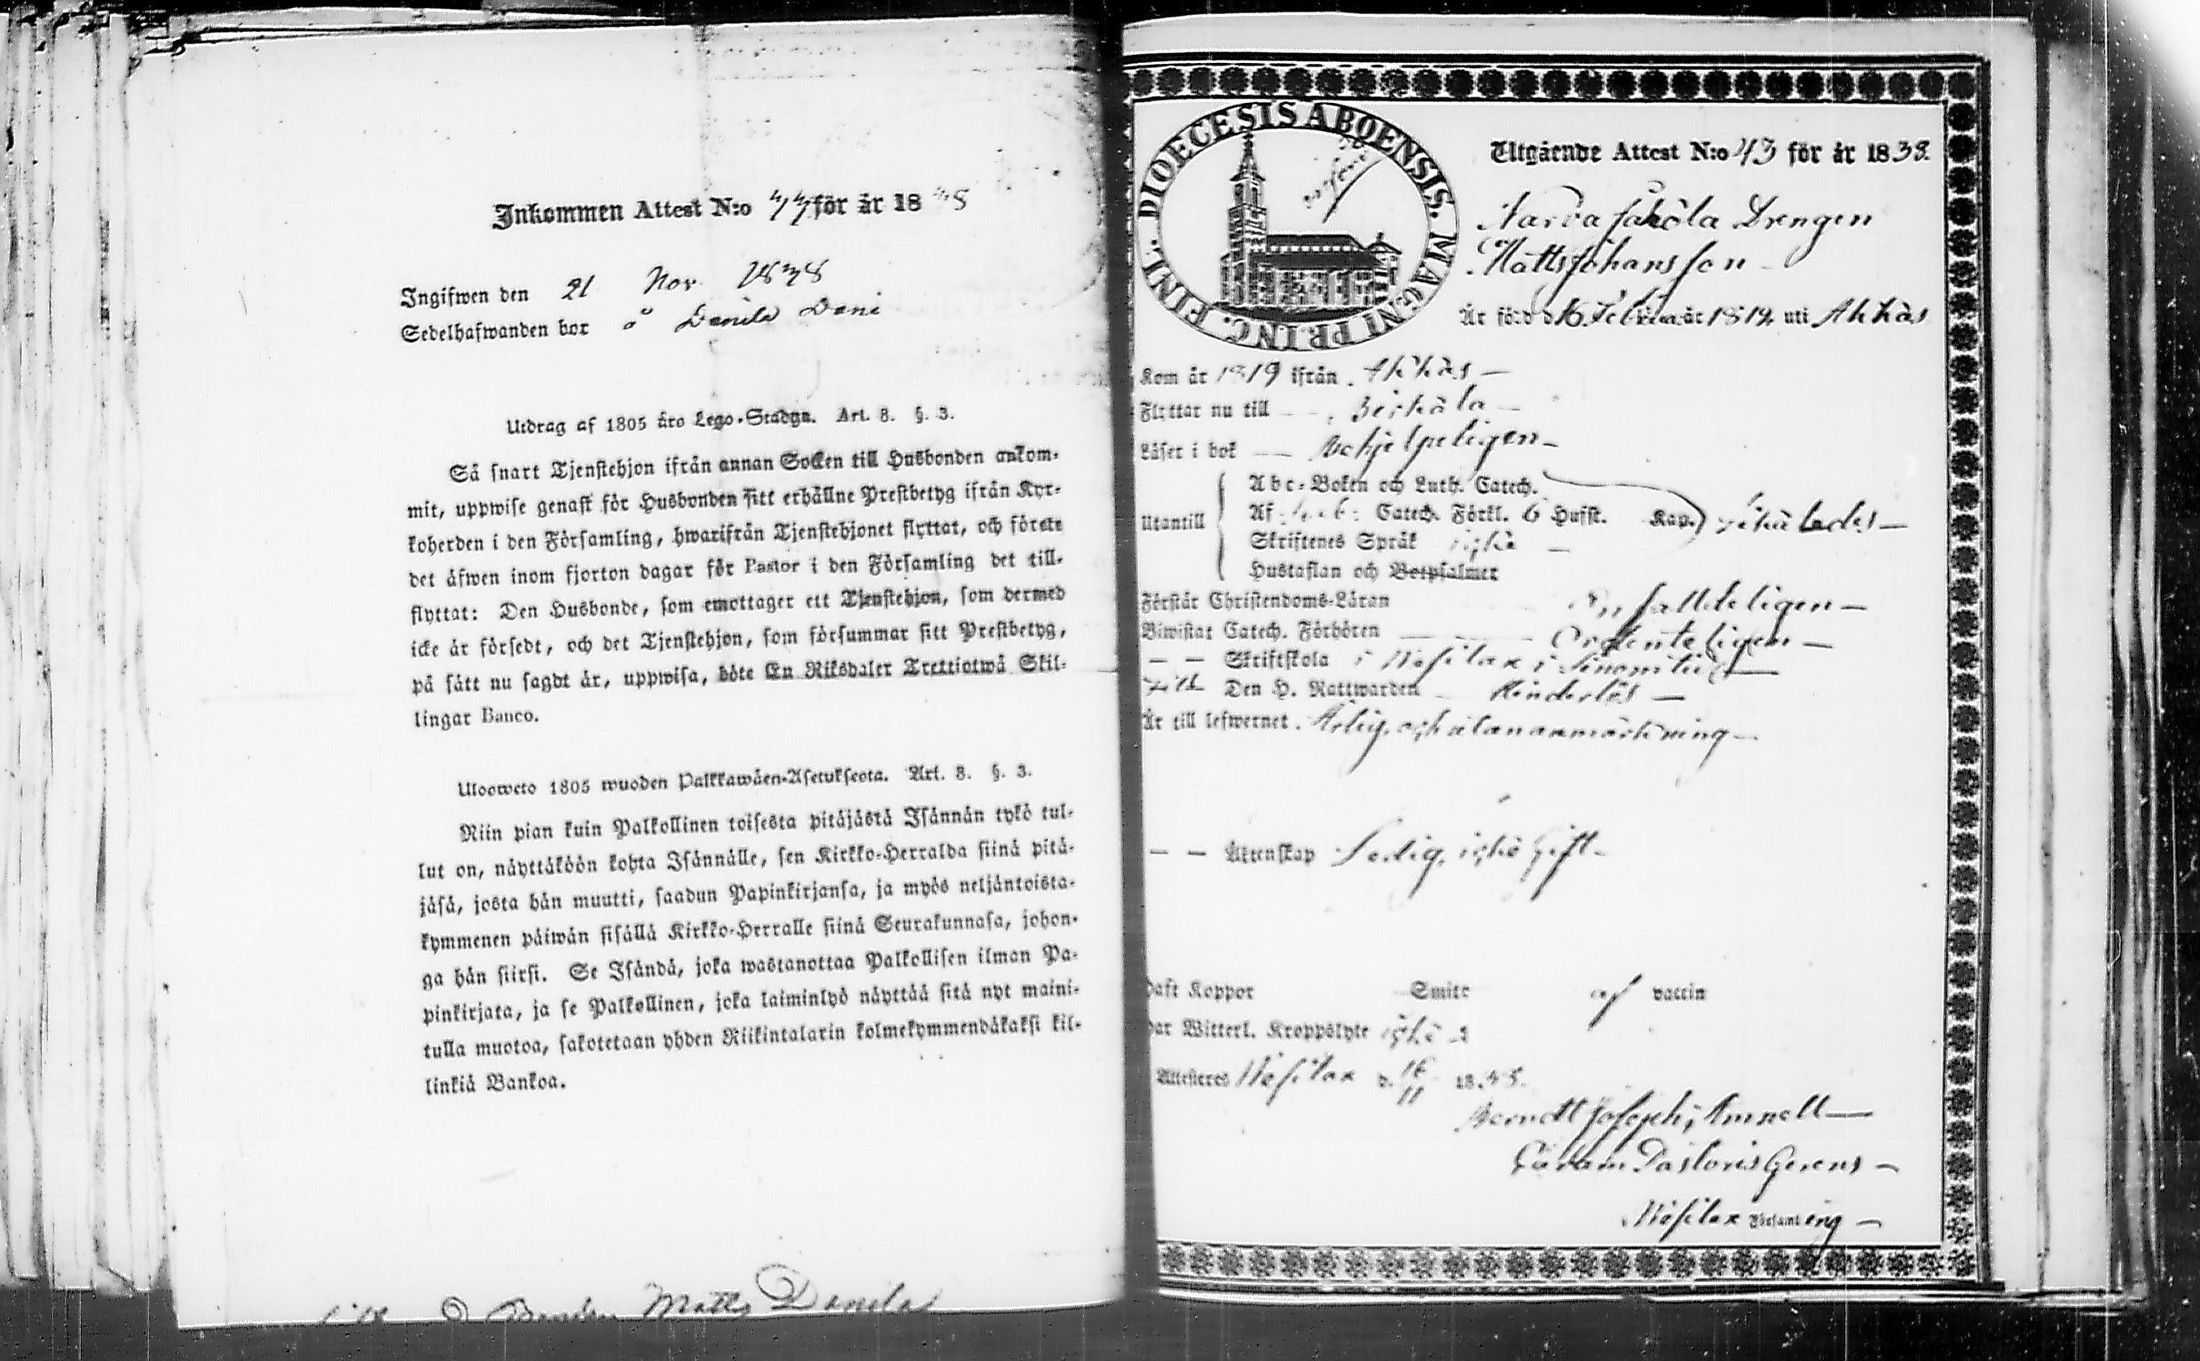 Inkommen Attest N:o 44 för år 1838
Ingifwen den 21 Nov 1838
Sedelhafwanden bor å Danila Dani
Utdrag af 1805 åro Lego-Stadga. Art. 8. §. 3.
Så snart Tjenstehjon ifrån annan Socken till Husbonden ankom-
mit, uppwise genast för Husbonden sitt erhållne Prestbetyg ifrån Kyr-
koherden i den Församling, hwarifrån Tjenstehjonet flyttat, och förete
det äfwen inom fjorton dagar för Pastor i den Församling det till-
flyttat: Den Husbonde, som emottager ett Tjenstehjon, som dermed
icke är försedt, och det Tjenstehjon, som försummar sitt Prestbetyg,
på sätt nu sagdt är, uppwisa, böte En Riksdaler Trettiotwå Skil-
lingar Banco.
Uloosweto 1805 wuoden Palkkawäen-Asetuksesta. Art. 8. §. 3.
Niin pian kuin Palkollinen toisesta pitäjästä Isännän tykö tul-
lut on, näyttäköön kohta Isännälle, sen Kirkko-Herralda siinä pitä-
jäsä, josta hän muutti, saadun Papinkirjansa, ja myös neljäntoista-
kymmenen päiwän sisällä Kirkko-Herralle siinä Seurakunnasa, johon-
ga hän siirsi. Se Isändä, joka wastanottaa Palkollisen ilman Pa-
pinkirjata, ja se Palkollinen, joka laiminlyö näyttää sitä nyt maini-
tulla muotoa, sakotetaan yhden Riikintalarin kolmekymmendäkaksi kil-
linkiä Bankoa.
Matts Danila
DIOECESIS ABOENSIS. MAGNI PRINC. FINL.
Utgående Attest N:o 43 för år 1838.
Drengen
Matts Johansson
Är född d. 16 Februari år 1819 uti Ahkas
Kom år 1819 ifrån Ahkas
Flyttar nu till Birkala
Läser i bok Behjelpeligen
Utantill
Abc-Boken och Luth. Catech.
Af Catech. Förkl. 6 Hufst. Kap.
Skriftenes Språk
Hustaflan och Botpsalmer
Förstår Christendoms-Läran Enfalldeligen
Biwistat Catech. Förhören Ordenteligen
— — Skriftskola i Wesilax
Den H. Nattwarden Hinderlös
Är till lefwernet Ärlig och utan anmärkning
— — Äktenskap Ledig, icke Gift
Haft Koppor Smitt af vaccin
Har Witterl. Kroppslyte icke
Attesteras Wesilax d. 16/11 1838.
Berndt Joseph
Pastoris Gerens
Wesilax Församling